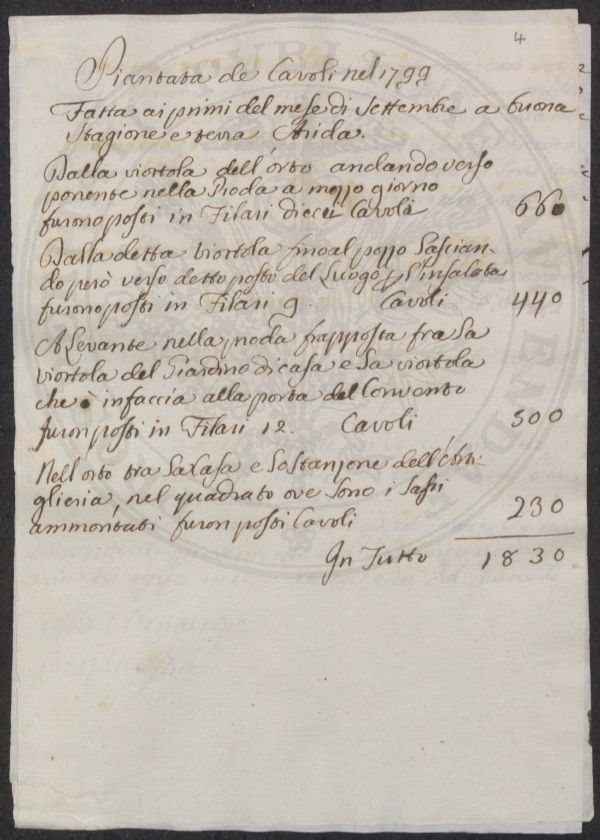 4
Piantata de Cavoli nel 1799
Fatta ai primi del mese di Settembre a buona
Stagione e terra Arida.
Dalla viottola dell'orto andando verso
ponente nella Proda a mezzo giorno
furono posti in Filari dieci Cavoli 660
Dalla detta viottola fino al pozzo Lascian-
do però verso detto posto del Luogo p l'insalata
furono posti in Filari 9. Cavoli 440
A Levante nella proda frapposta fra La
viottola del Giardino di casa e La viottola
che è infaccia alla porta del Convento
furon posti in Filari 12. Cavoli 500
Nell'orto tra La Casa e Lo Stanzone dell'Arti-
glieria, nel quadrato ove sono i Sassi
ammontati furon posti Cavoli 230
In Tutto 1830